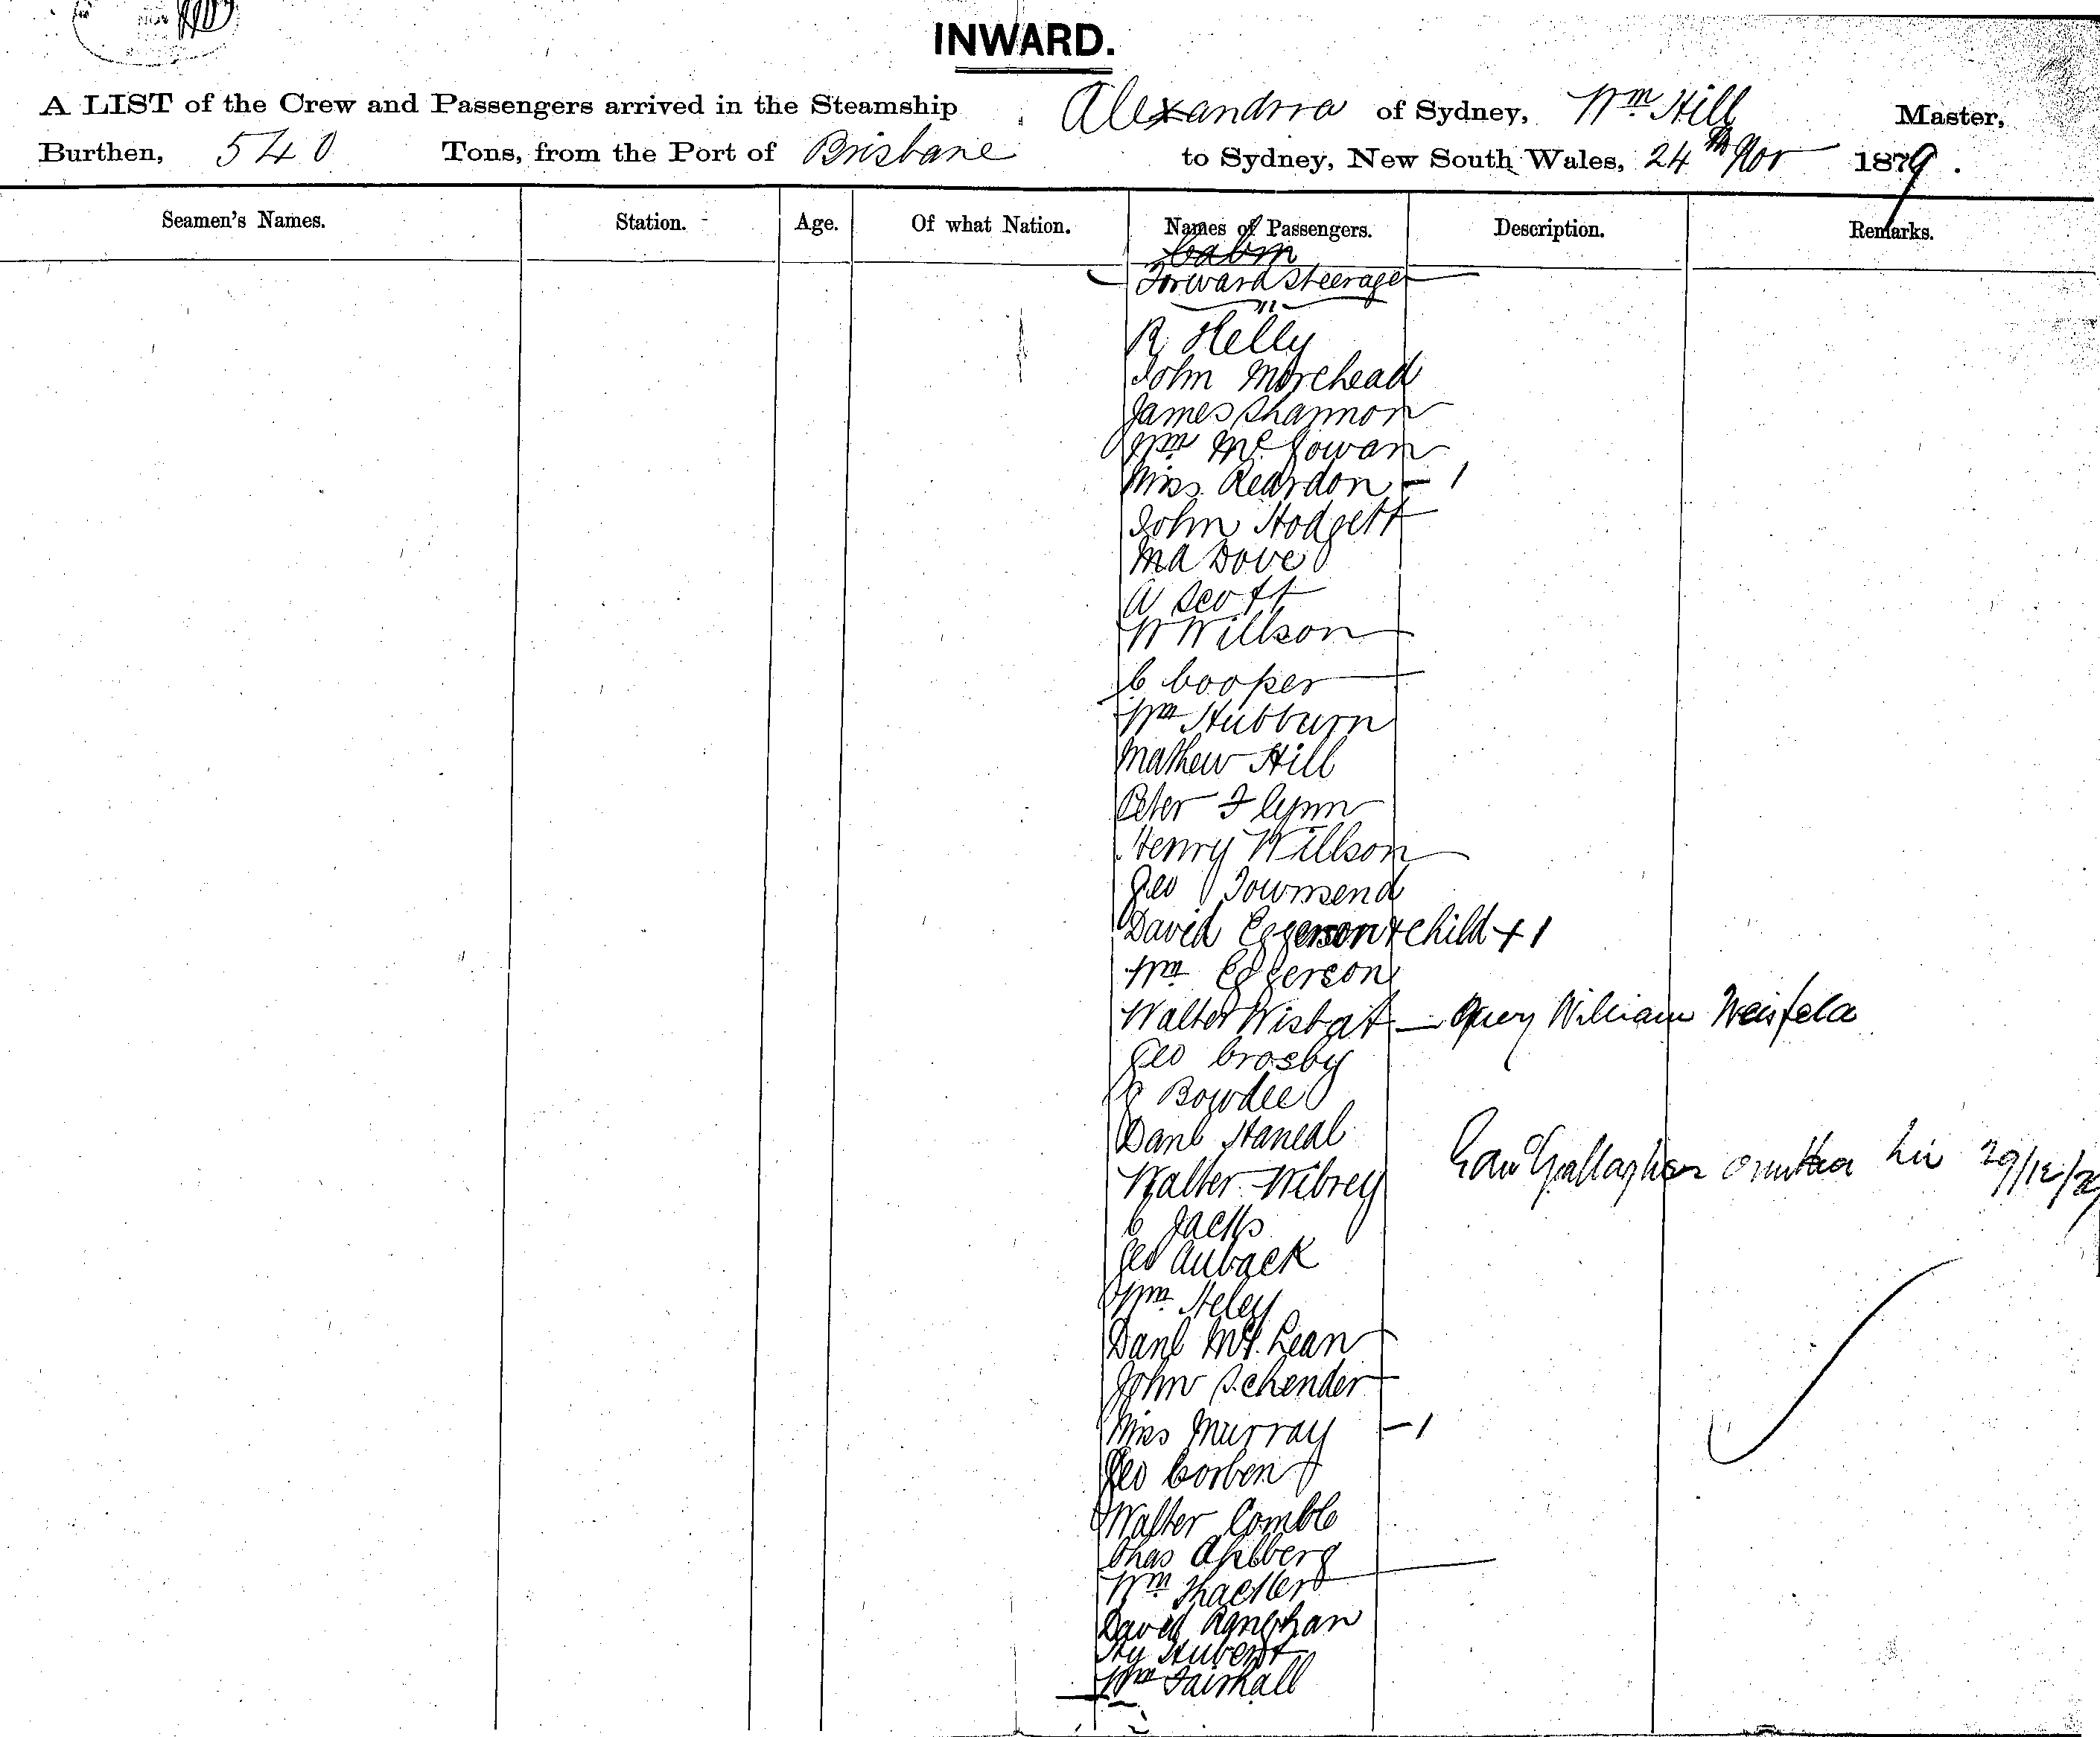 INWARD.
A LIST of the Crew and Passengers arrived in the Steamship Alexandra of Sydney, Wm Hill Master,
Burthen, 540 Tons, from the Port of Brisbane to Sydney, New South Wales, 24th Nov 1879.
Seamen's Names. Station. Age. Of what Nation. Names of Passengers. Description. Remarks.
Cabin
Forward Steerage
R Kelly
John Morehead
James Shannon
Wm McGowan
Miss Reardon - 1
John Hodgett
Ma Dove
A Scott
W Willson
C Cooper
Wm Hubburn
Mathew Hill
Peter Flynn
Henry Willson
Geo Townsend
David Eggerson & child + 1
Wm Eggerson
Walter Wisbat — Query William Weisfeld
Geo Crosby
Bowdee
Danl Haneal
Walter Wibrey
Gallagher 29/12/
C Jacks
Geo Auback
Wm Heley
Danl McLean
John Schender
Miss Murray - 1
Geo Corben
Walter Comble
Chas Ahlberg
Wm
David
Hy Hubert
Wm Fairhall